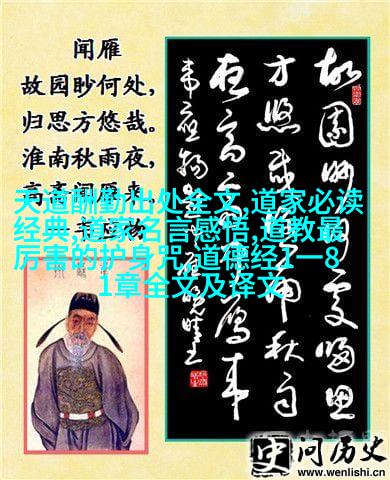 闻雁
故园眇何处,
归思方悠哉。
淮南秋雨夜,
高斋闻雁来。
韦应物
天道酬勤出处全文,道家必读
经典,道家名言感悟,道教最
厉害的护身咒,道德经1一8
1章全文及译文
故園眇何處歸思
方悠哉淮南秋雨
夜高斋闻雁来
史问历史
www.wenlishi.cn